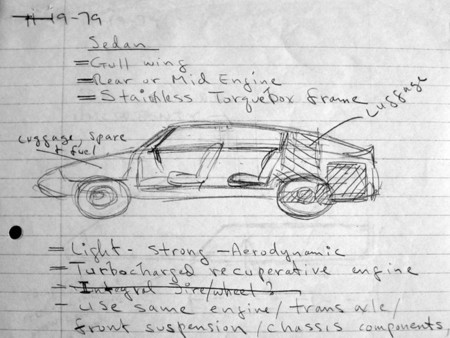 11-19-79
Sedan
= Gull wing
= Rear or Mid Engine
= Stainless Torquebox frame
Luggage
Luggage, Spare
+ fuel
= Light - Strong - Aerodynamic
= Turbocharged recuperative engine
- Integral tire/wheel?
- Use same engine/transaxle/
front suspension/chassis components,